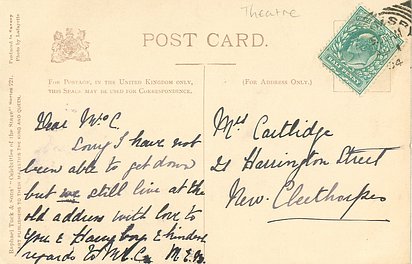 Theatre
POST CARD.
FOR POSTAGE, IN THE UNITED KINGDOM ONLY,
THIS SPACE MAY BE USED FOR CORRESPONDENCE.
(FOR ADDRESS ONLY.)
Dear Mrs C.
Sorry I have not
been able to get down
but we still live at the
old address with love to
you & Harry boy & kindest
regards to Mr C.
Mrs Cartlidge
21 Harrington Street
New. Cleethorpes
Raphael Tuck & Sons' "Celebrities of the Stage" Series
ART PUBLISHERS TO THEIR MAJESTIES THE KING AND QUEEN.
Photo by Lafayette